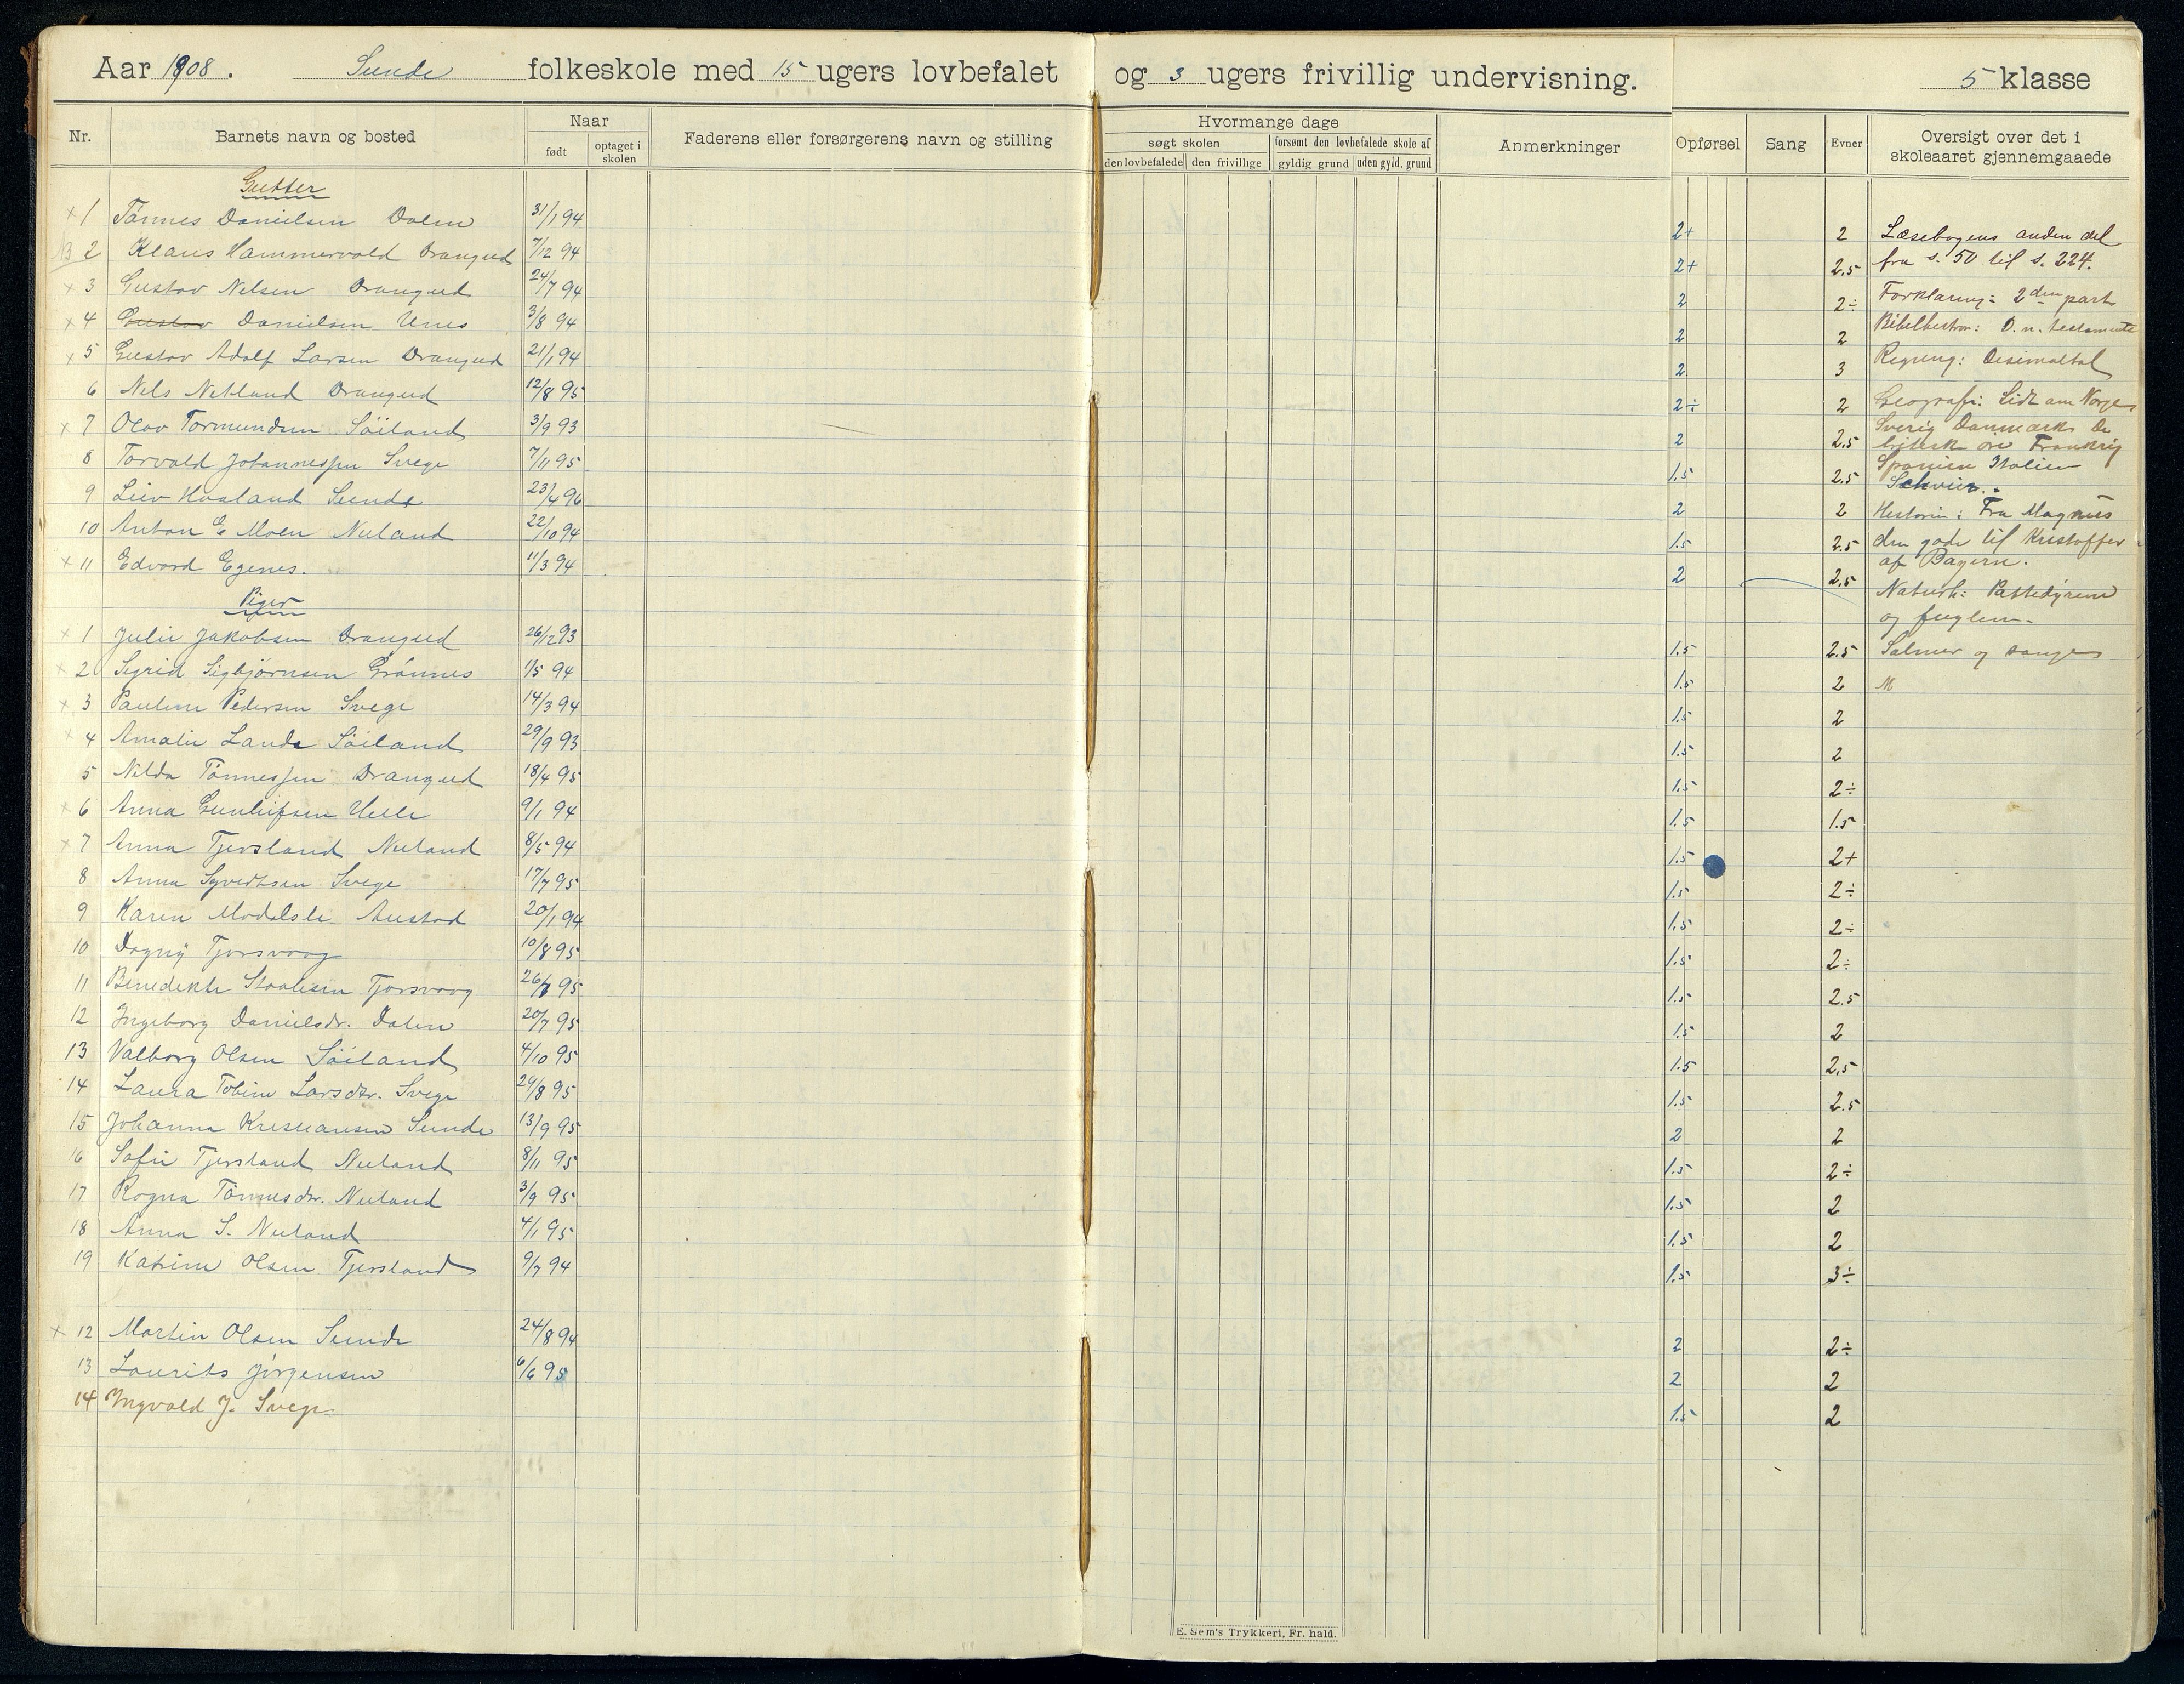 Aar 1908. Sunde folkeskole med 15 ugers lovbefalet og 3 ugers frivillig undervisning. 5 klasse
Nr. Barnets navn og bosted Naar født optaget i skolen Faderens eller forsørgerens navn og stilling Hvormange dage søgt skolen den lovbefalede den frivillige forsømt den lovbefalede skole af gyldig grund uden gyld. grund Anmerkninger Opførsel Sang Evner Oversigt over det i skoleaaret gjennemgaaede
Gutter
x 1 Tönnes Danielsen Dalen 31/1 94 2+ 2 Læsebogens anden del
2 Klaus Hammervold Drangeid 7/12 94 2+ 2.5 fra s. 50 til s. 224.
x 3 Gustav Nelsen Drangeid 24/7 94 2 2÷ Forklaring: 2den part
x 4 Gustav Danielsen Unes 3/8 94 2 2 Bibelhistor: D. n. testamente
x 5 Gustav Adolf Larsen Drangeid 21/1 94 2 3 Regning: Desimaltal
6 Nils Netland Drangeid 12/8 95 2÷ 2 Geografi: Lidt om Norge,
x 7 Olav Tormundsen Söiland 3/9 93 2 2.5 Sverig Danmark De
britisk öer Frankrig
8 Torvald Johannessen Svege 7/11 95 1.5 2.5 Spanien Italien
Schveiz.
9 Leiv Haaland Sunde 23/4 96 2 2 Historie: Fra Magnus
10 Anton G Moen Nuland 22/10 94 1.5 2.5 den gode til Kristoffer
x 11 Edvard Egenes. 11/3 94 2 2.5 af Bayern.
Piger
Naturh: Pattedyrene
og fuglene.
x 1 Julie Jakobsen Drangeid 26/12 93 1.5 2.5 Salmer og sange
x 2 Sigrid Sigbjörnsen Grönnes 1/5 94 1.5 2 M
x 3 Pauline Pedersen Svege 14/3 94 1.5 2
x 4 Amalie Lande Söiland 29/9 93 1.5 2
5 Nilda Tönnessen Drangeid 18/4 95 1.5 2÷
x 6 Anna Gunleifsen Uelle 9/1 94 1.5 1.5
x 7 Anna Tjersland Nuland 8/5 94 1.5 2+
8 Anna Syvertsen Svege 17/7 95 1.5 2÷
9 Karen Modalsli Austad 20/1 94 1.5 2÷
10 Dagny Tjorsvaag 10/8 95 1.5 2÷
11 Benedikte Staalesen Tjorsvaag 26/8 95 1.5 2.5
12 Ingeborg Danielsdr. Dalen 20/7 95 1.5 2
13 Valborg Olsen Söiland 4/10 95 1.5 2.5
14 Laura Tobine Larsdtr. Svege 29/8 95 1.5 2.5
15 Johanna Kristiansen Sunde 13/9 95 2 2
16 Sofie Tjersland Nuland 8/11 95 1.5 2÷
17 Ragna Tönnesdtr. Nuland 3/9 95 1.5 2
18 Anna S. Nuland 4/1 95 1.5 2
19 Katrine Olsen Tjersland 9/7 94 1.5 3÷
x 12 Martin Olsen Sunde 24/8 94 2 2÷
13 Laurits Jörgensen 6/6 95 2 2
14 Ingvald J. Svege 1.5 2
E. Sem's Trykkeri, Fr. hald.